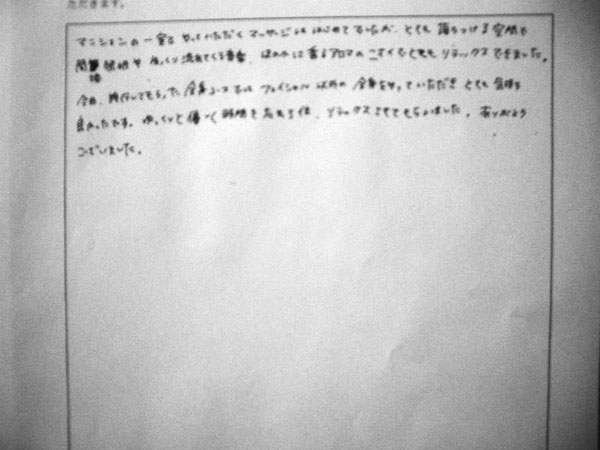 ただきます。
マンションの一室で やっていただく マッサージは はじめてでしたが、とても 落ちつける 空間で
照明や ゆっくり流れてくる音楽、ほのかに香るアロマの とてもリラックスできました。
今日、 全身コースでは フェイシャル 以外の 全身をやっていただき とても 気持ち
良かったです。ゆっくりと 働く 時間を 忘れる位、リラックスさせてもらいました。ありがとう
ございました。